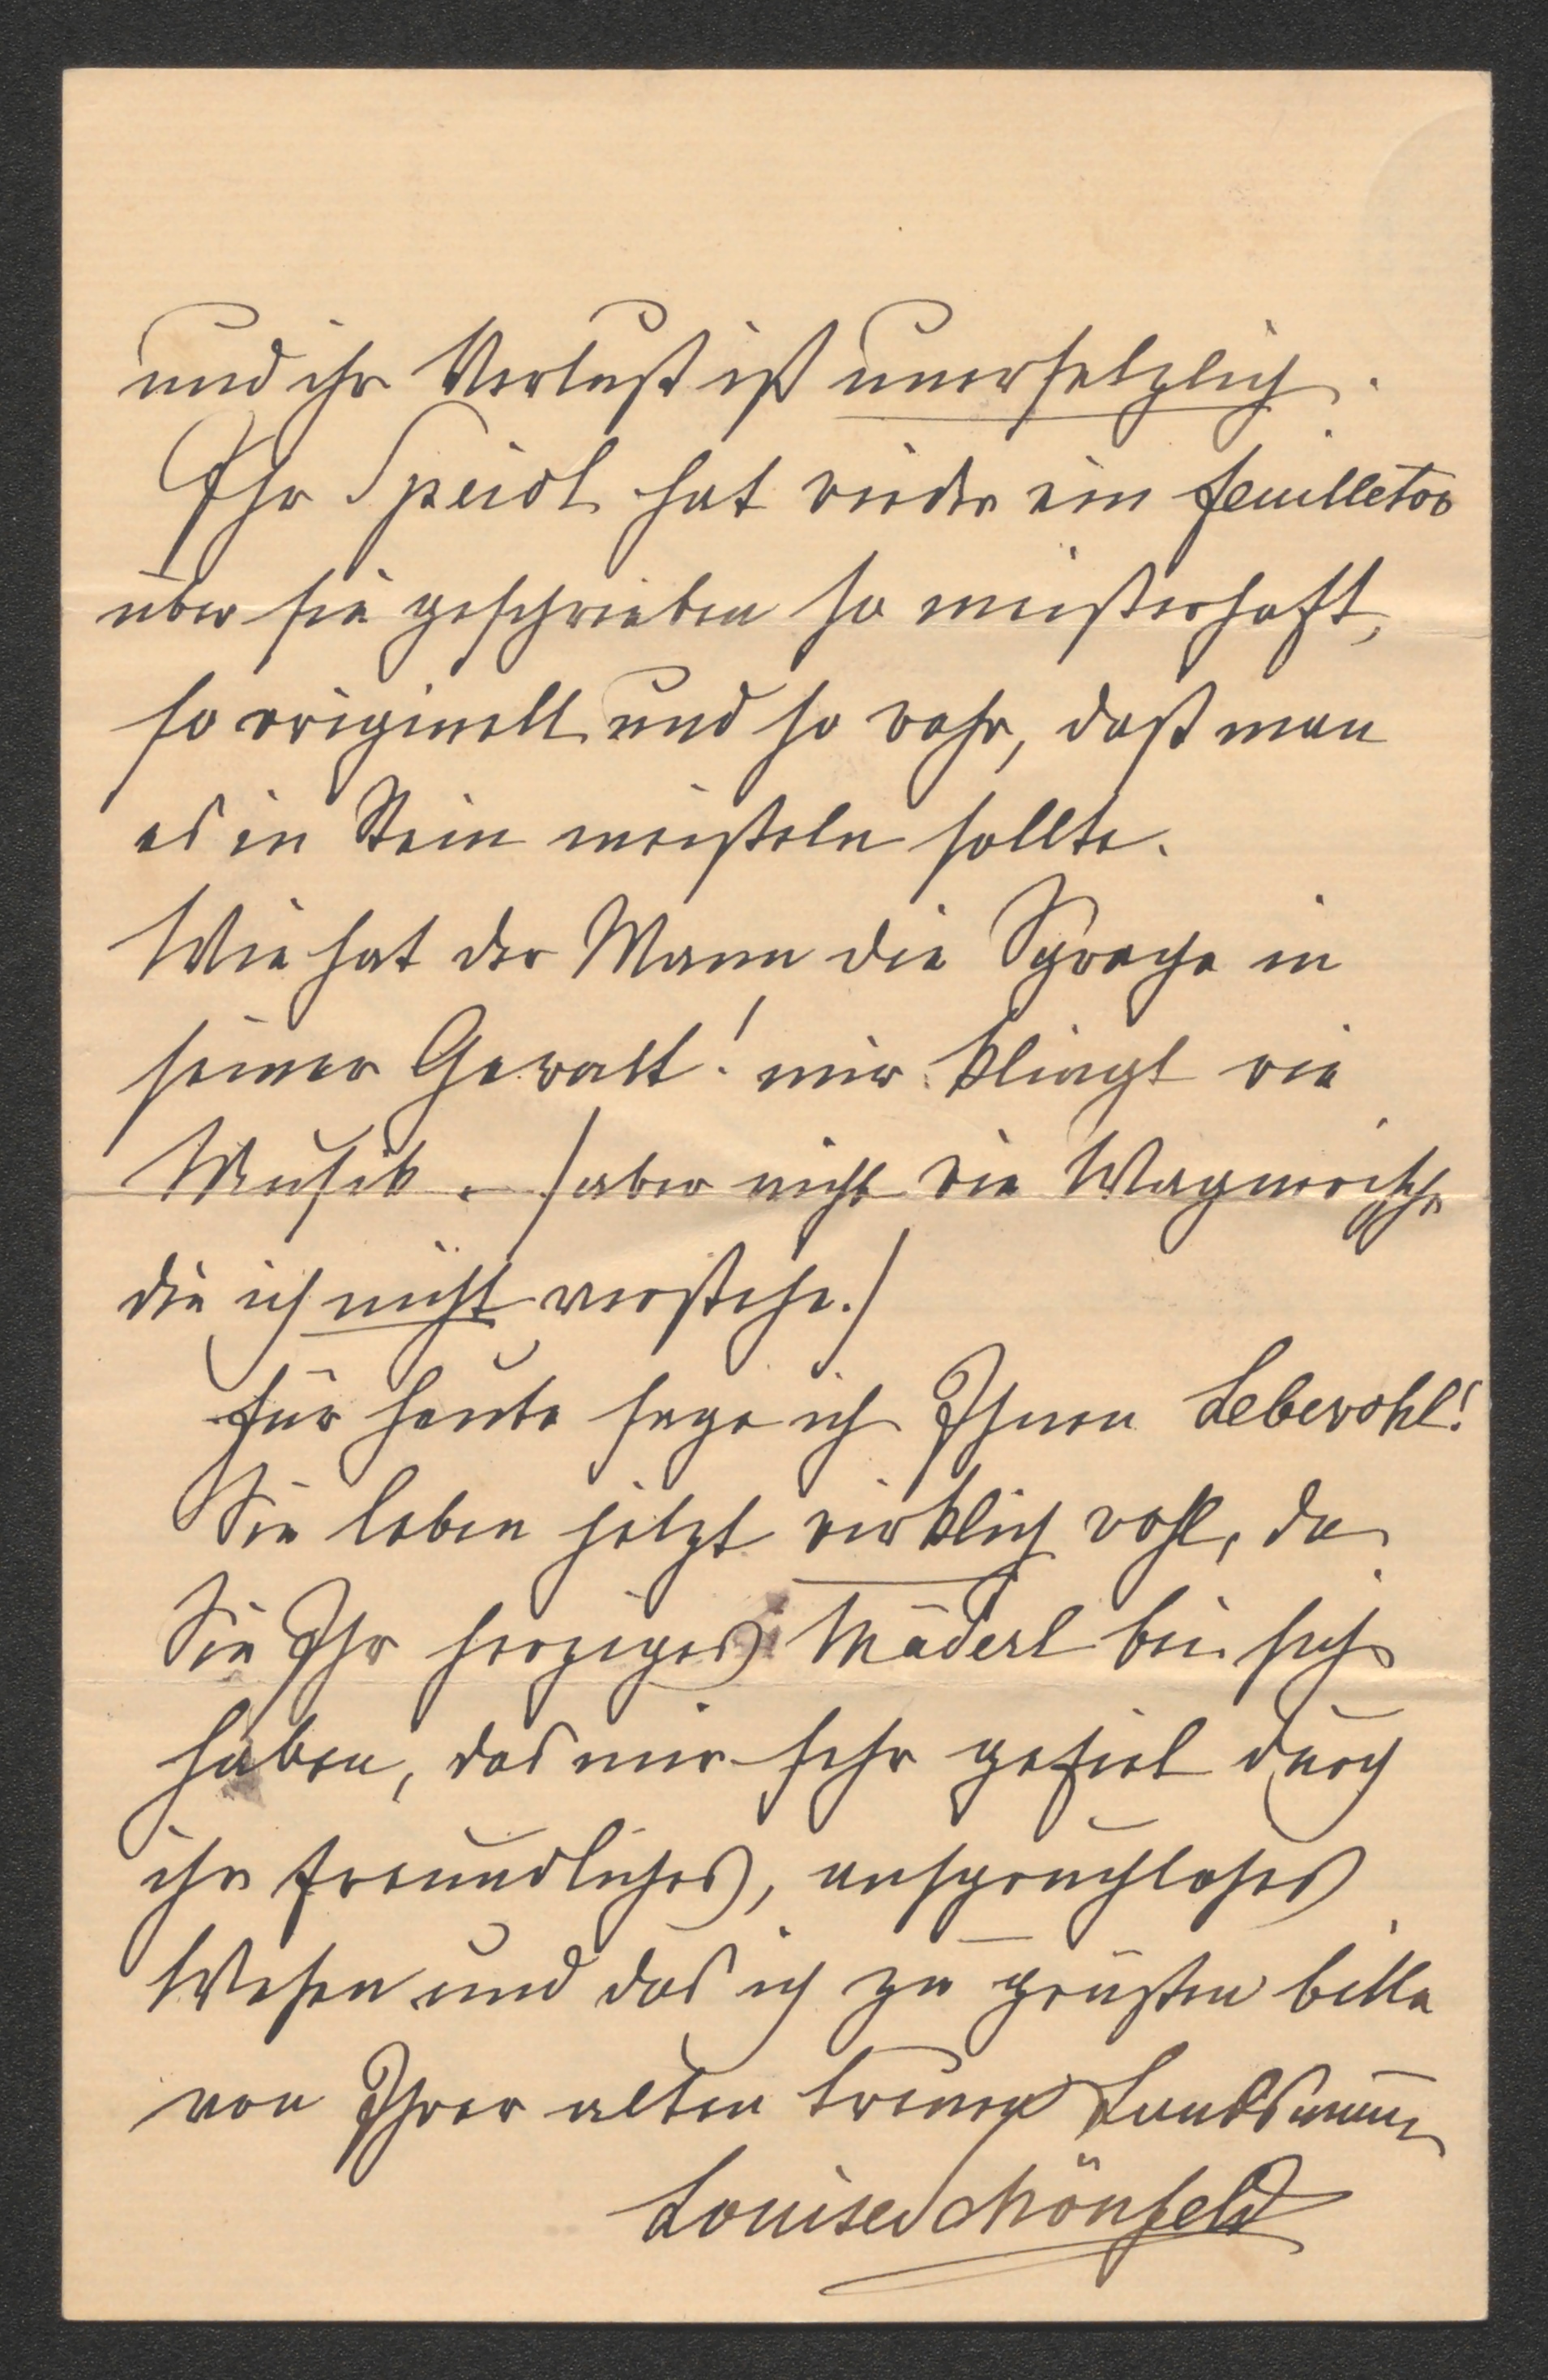 und ihr Verlust ist unersetzlich.
Ihr Speidl hat wieder ein feuilleton
über sie geschrieben so meisterhaft,
so originell und so wahr, daß man
es in Stein meißeln sollte.
Wie hat der Mann die Sprache in
seiner Gewalt! mir klingt wie
Musik. (aber nicht wie Wagnerische
die ich nicht verstehe.)
für heute sage ich Ihnen Lebewohl!
Sie leben jetzt wirklich wohl, da
Sie Ihr herziges Mäderl bei sich
haben, das mir sehr gefiel durch
ihr freundliches, anspruchloses
Wesen und das ich zu grüßen bitte
von Ihrer alten treuen Landsmänn
Louise Schönfeld